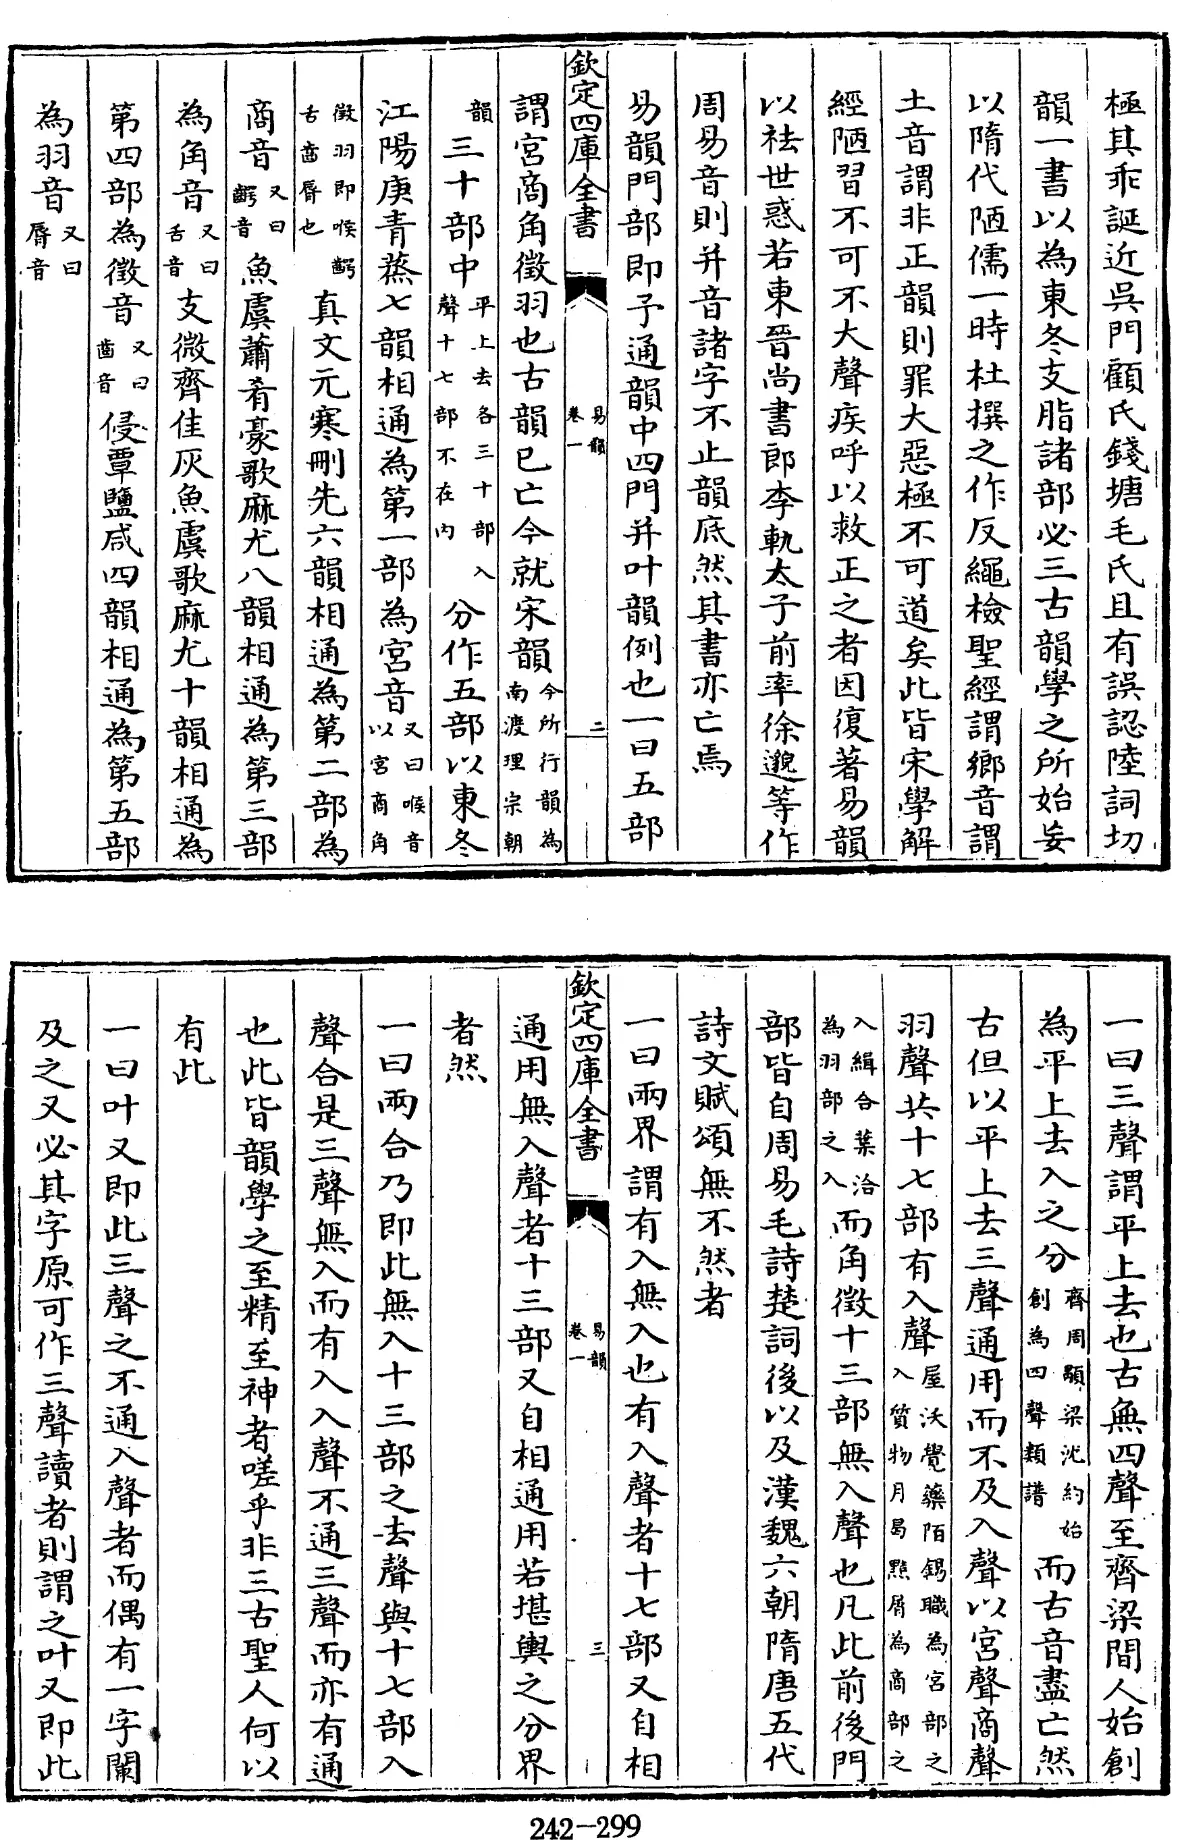 極其乖誕近吳門顧氏錢塘毛氏且有誤認陸詞切
韻一書以為東冬支脂諸部必三古韻學之所始妄
以隋代陋儒一時杜撰之作反繩檢聖經謂鄉音謂
土音謂非正韻則罪大惡極不可道矣此皆宋學解
經陋習不可不大聲疾呼以救正之者因復著易韻
以祛世惑若東晉尚書郎李軌太子前率徐邈等作
周易音則并音諸字不止韻底然其書亦亡焉
易韻門部即予通韻中四門并叶韻例也一曰五部
欽定四庫全書 易韻 卷一 二
謂宮商角徵羽也古韻已亡今就宋韻今所行韻為南渡理宗朝
韻三十部中平上去各三十部入聲十七部不在內分作五部以東冬
江陽庚青蒸七韻相通為第一部為宮音又曰喉音以宮商角
徵羽即喉齶舌齒脣也真文元寒刪先六韻相通為第二部為
商音又曰齶音魚虞蕭肴豪歌麻尤八韻相通為第三部
為角音又曰舌音支微齊佳灰魚虞歌麻尤十韻相通為
第四部為徵音又曰齒音侵覃鹽咸四韻相通為第五部
為羽音又曰脣音
一曰三聲謂平上去也古無四聲至齊梁間人始創
為平上去入之分齊周顒梁沈約始創為四聲類譜而古音盡亡然
古但以平上去三聲通用而不及入聲以宮聲商聲
羽聲共十七部有入聲屋沃覺藥陌錫職為宮部之入質物月曷黠屑為商部之
入緝合葉洽為羽部之入而角徵十三部無入聲也凡此前後門
部皆自周易毛詩楚詞後以及漢魏六朝隋唐五代
詩文賦頌無不然者
一曰兩界謂有入無入也有入聲者十七部又自相
欽定四庫全書 易韻 卷一 三
通用無入聲者十三部又自相通用若堪輿之分界
者然
一曰兩合乃即此無入十三部之去聲與十七部入
聲合是三聲無入而有入入聲不通三聲而亦有通
也此皆韻學之至精至神者嗟乎非三古聖人何以
有此
一曰叶又即此三聲之不通入聲者而偶有一字闌
及之又必其字原可作三聲讀者則謂之叶又即此
242-299